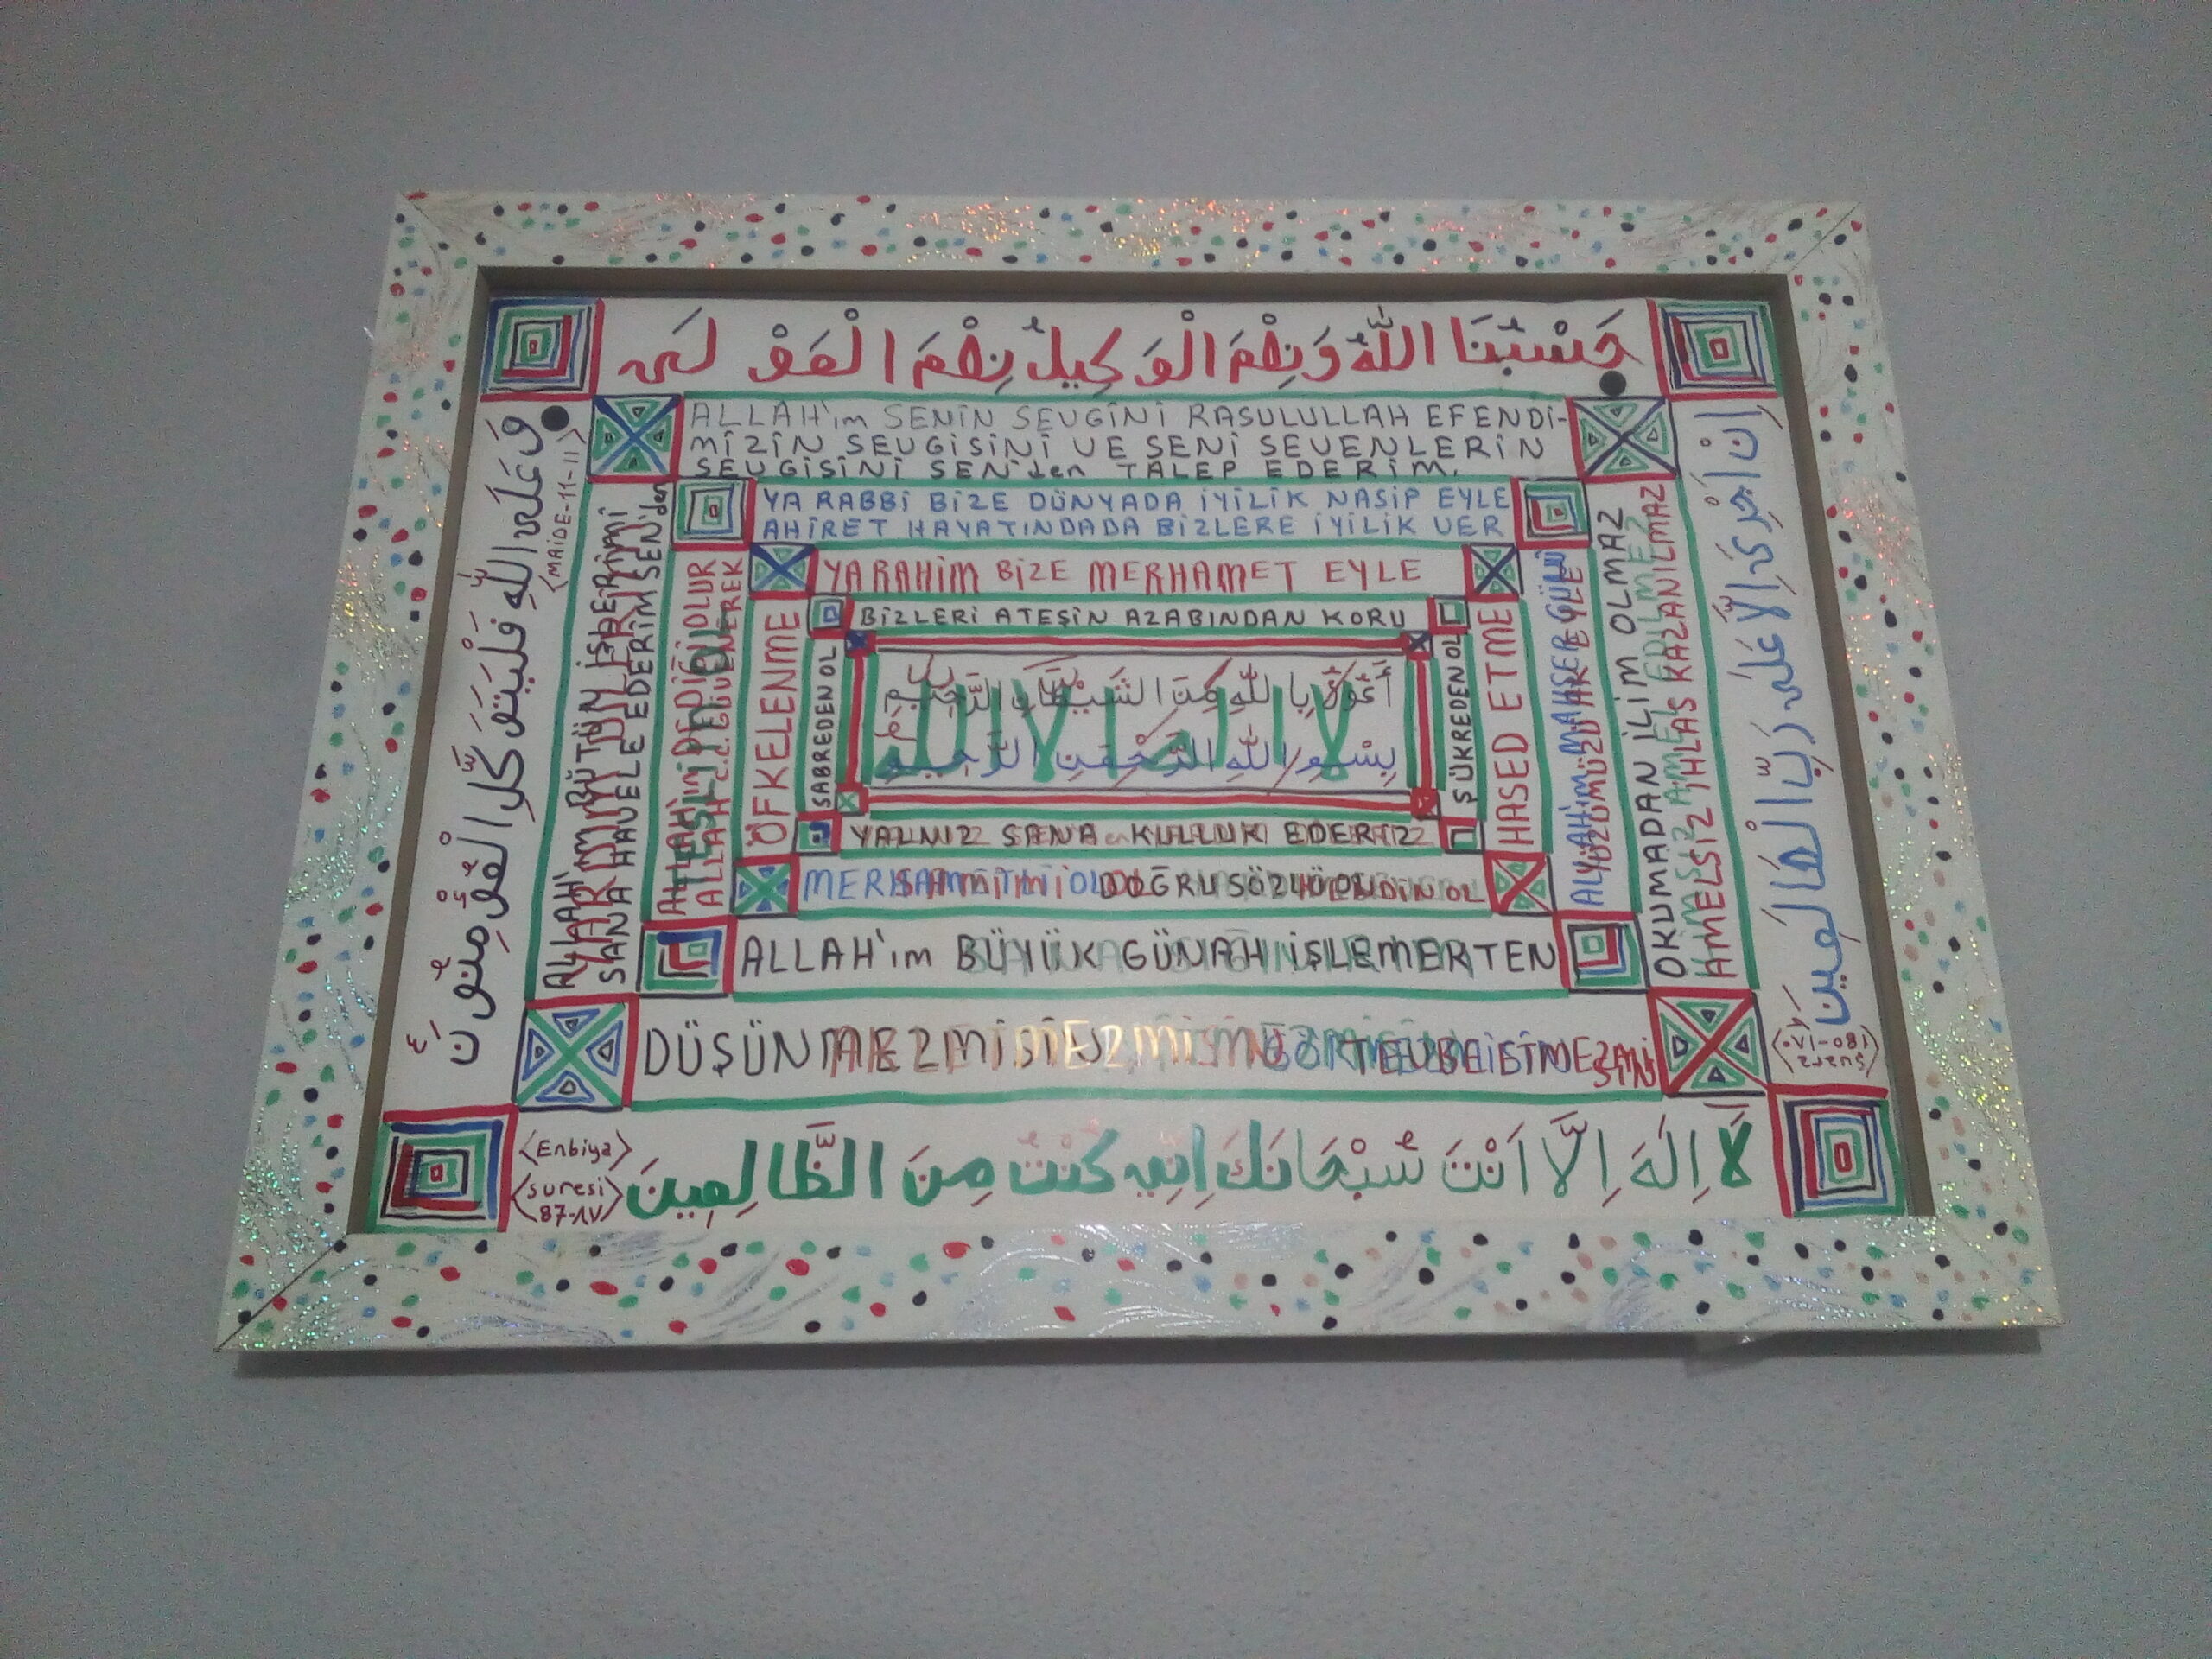 حَسْبُنَا اللّٰهُ وَنِعْمَ الْوَكِيلُ نِعْمَ الْمَوْلَى
ALLAH'ım SENİN SEVGİNİ RASULULLAH EFENDİ-
MİZİN SEVGİSİNİ VE SENİ SEVENLERİN
SEVGİSİNİ SENİden TALEP EDERİM.
YA RABBİ BİZE DÜNYADA İYİLİK NASİP EYLE
AHİRET HAYATINDADA BİZLERE İYİLİK VER
YARAHİM BİZE MERHAMET EYLE
BİZLERİ ATEŞİN AZABINDAN KORU
أَعُوذُ بِاللّٰهِ مِنَ الشَّيْطَانِ الرَّجِيمِ
بِسْمِ اللّٰهِ الرَّحْمٰنِ الرَّحِيمِ
YALNIZ SANA KULLUK EDERİZ
DOĞRU SÖZLÜ OL
ALLAH'ım BÜYÜK GÜNAH İŞLEMEKTEN
لَا اِلٰهَ اِلَّا اَنْتَ سُبْحَانَكَ اِنِّي كُنْتُ مِنَ الظَّالِمِينَ
<Enbiya>
<suresi>
87-٨٧
وَعَلَى اللّٰهِ فَلْيَتَوَكَّلِ الْمُؤْمِنُونَ
<MAİDE-11-١١>
BÜTÜN İŞLERİMİ
SANA HAVELE EDERİM SENİden
ALLAH c.c. GÜVENEREK
ÖFKELENME
SABREDEN OL
ŞÜKREDEN OL
HASED ETME
ALLAH'ım MAHŞER GÜNÜ
YÜZÜMÜZÜ AK EYLE
OKUMADAN İLİM OLMAZ
AMELSİZ İHLAS KAZANILMAZ
اِنْ اَجْرِيَ اِلَّا عَلَى رَبِّ الْعَالَمِينَ
<şuara
180-١٨٠>